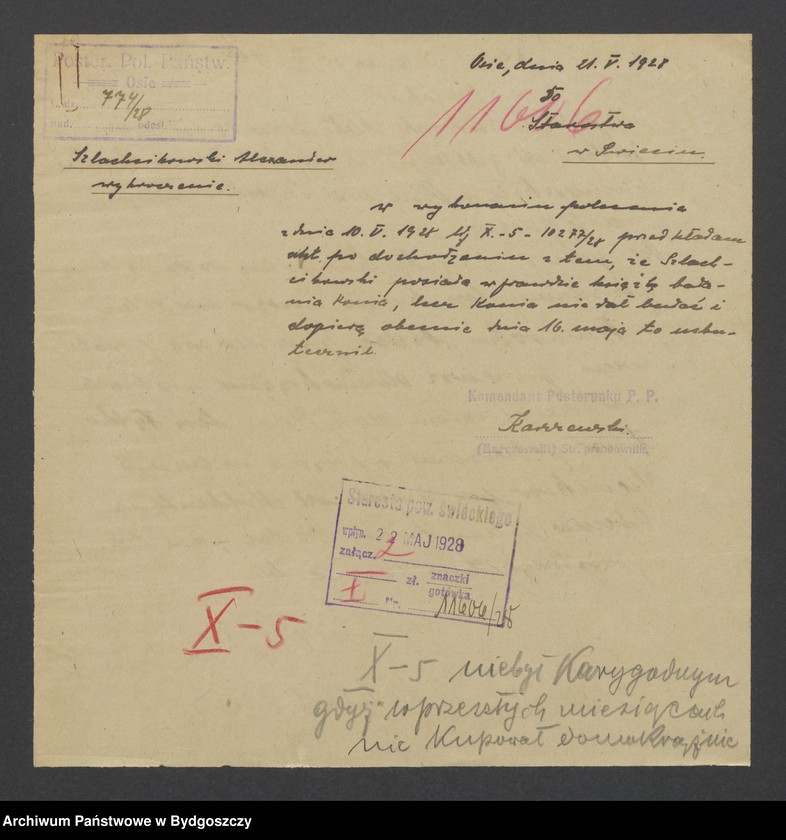 Poster. Pol. Państw.
Osie
L. dz. 774/28
zał. odest.
Osie, dnia 21. V. 1928
11606
Do
Starostwa
w Świeciu.
Szlachcikowski Alexander
wykroczenie.
W wykonaniu polecenia
z dnia 10. V. 1928 Lj X.-5-10277/28 przedkładam
akt. po dochodzeniu z tem, że Szlach-
cikowski posiada wprawdzie książkę bada-
nia konia, lecz konia nie dał badać i
dopierą obecnie dnia 16. maja to usku-
tecznił.
Komendant Posterunku P. P.
Karczewski.
(Karczewski) St. przodownik.
Starosta pow. świeckiego
wpłyn. 22 MAJ 1928
załącz. 2
zł. znaczki
gotówka
I Nr. 11606/28
X-5
X-5 niebył karygodnym
gdyż w przeszłych miesiącach
nie kupował domokrążnie
Archiwum Państwowe w Bydgoszczy